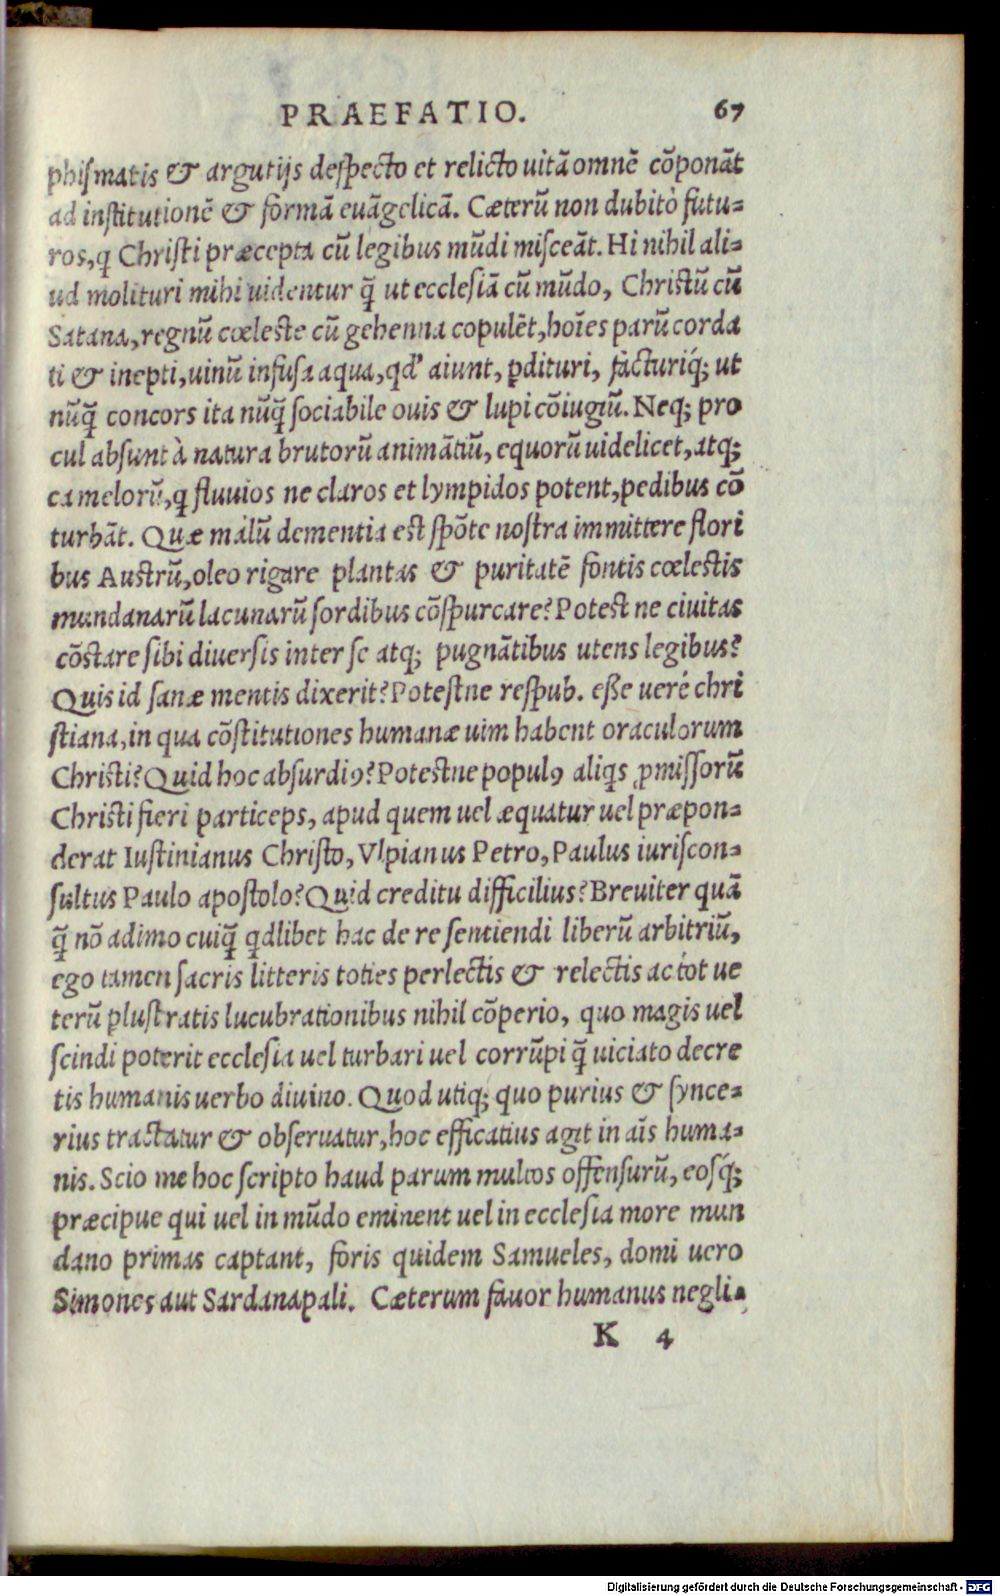 PRAEFATIO. 67
phismatis & argutijs despecto et relicto uitā omnē cōponāt
ad institutionē & formā euāgelicā. Cæterū non dubito futu-
ros, q̃ Christi præcepta cū legibus mūdi misceāt. Hi nihil ali-
ud molituri mihi uidentur q̃ ut ecclesiā cū mūdo, Christū cū
Satana, regnū cœleste cū gehenna copulēt, hoīes parū corda
ti & inepti, uinū infusa aqua, qd' aiunt, ꝑdituri, facturiq́; ut
nūq̃ concors ita nūq̃ sociabile ouis & lupi cōiugiū. Neq; pro
cul absunt à natura brutorū animātiū, equorū uidelicet, atq;
camelorū, q̃ fluuios ne claros et lympidos potent, pedibus cō
turbāt. Quæ malū dementia est spōte nostra immittere flori
bus Austrū, oleo rigare plantas & puritatē fontis cœlestis
mundanarū lacunarū sordibus cōspurcare? Potest ne ciuitas
cōstare sibi diuersis inter se atq; pugnātibus utens legibus?
Quis id sanæ mentis dixerit? Potestne respub. eße ueré chri
stiana, in qua cōstitutiones humanæ uim habent oraculorum
Christi? Quid hoc absurdiꝰ? Potestne populꝰ aliqs ꝓmissorū
Christi fieri particeps, apud quem uel æquatur uel præpon-
derat Iustinianus Christo, Vlpianus Petro, Paulus iuriscon-
sultus Paulo apostolo? Quid creditu difficilius? Breuiter quā
q̃ nō adimo cuiq̃ qdlibet hac de re sentiendi liberū arbitriū,
ego tamen sacris litteris toties perlectis & relectis ac tot ue
terū ꝑlustratis lucubrationibus nihil cōperio, quo magis uel
scindi poterit ecclesia uel turbari uel corrūpi q̃ uiciato decre
tis humanis uerbo diuino. Quod utiq; quo purius & synce-
rius tractatur & obseruatur, hoc efficatius agit in aīs huma-
nis. Scio me hoc scripto haud parum multos offensurū, eosq́;
præcipue qui uel in mūdo eminent uel in ecclesia more mun
dano primas captant, foris quidem Samueles, domi uero
Simones aut Sardanapali. Cæterum fauor humanus negli-
K 4
Digitalisierung gefördert durch die Deutsche Forschungsgemeinschaft - DFG